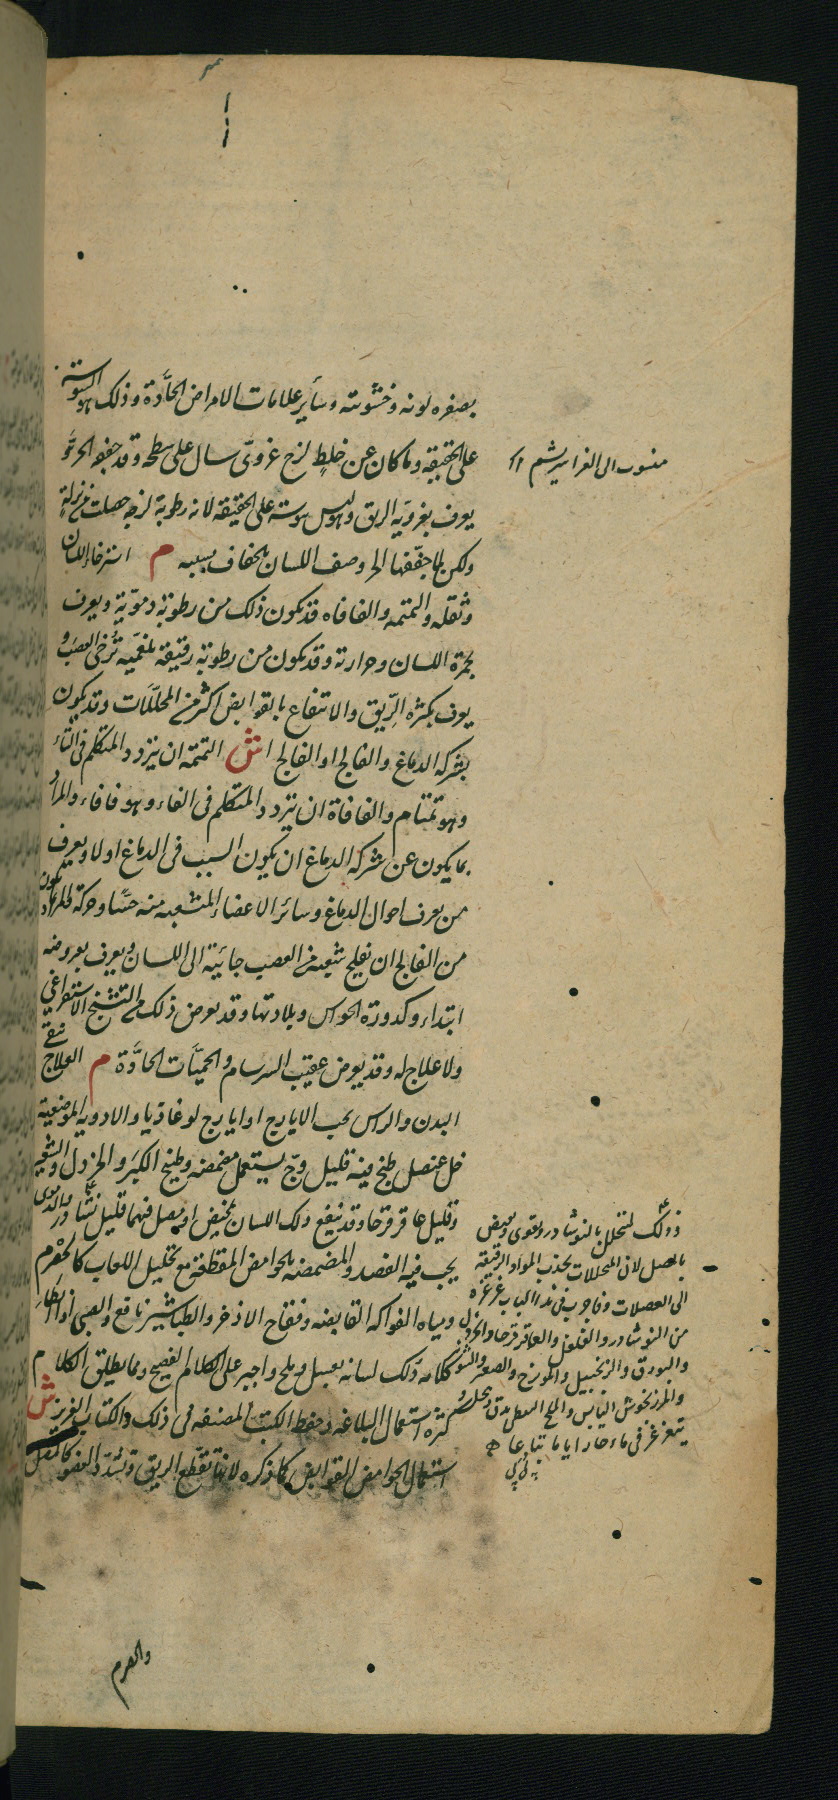 بصفره لونه وخشونته وسائر علامات الامراض الحادّة وذلك هو اليبوسة
على الحقيقة وما كان عن خلط لزج غروىّ سال على سطحه وقد جففه الحر
يعرف بغرويّه الريق وليس يبوسته على الحقيقة لانه رطوبة لزجه حصلت من نزلة
ولكن لما جففها الحر وصف اللسان بالجفاف بسببه م استرخاء اللسان
وثقله والتمتمه والفافاه قد يكون ذلك من رطوبة دمويّة ويعرف
بحمرة اللسان وحرارته وقد يكون من رطوبة رقيقة بلغميّه ترخى العصب و
يعرف بكثرة الرّيق والانتفاع بالقوابض اكثر من المحلّلات وقد يكون
بشركه الدماغ والفالج او الفالج ش التمتمة ان يتردد المتكلم فى التاء
وهو تمتام والفافاة ان يتردد المتكلم فى الفاء وهو فافاء والمراد
بما يكون عن شركه الدماغ ان يكون السبب فى الدماغ اولا ويعرف
من يعرف احوال الدماغ وسائر الاعضاء المنشعبه منه حسّا وحركة والمراد
من الفالج ان يفلج شعبه من العصب جائية الى اللسان ويعرف بعروضه
ابتداء وكدورة الحواس وبلادتها وقد يعرض ذلك من التشنج الاستفراغى
ولا علاج له وقد يعرض عقيب السرسام والحميّات الحادّة م العلاج ينقى
البدن والراس بحب الايارج او ايارج لوغاذيا والادويه الموضعية
خل عنصل طبخ فيه قليل وجّ يستعمل مضمضه وطبيخ الكبر والخردل
وقليل عاقرقرحا وقد ينفع دلك اللسان بمخيض او بصل فيهما قليل نشادر والدموى
يجب فيه الفصد والمضمضه بالحوامض المقطعة مع تحليل اللعاب كالحصرم
ومياه الفواكه القابضه وفقاح الاذخر والطباشير نافع والصبى اذا ابطأ
كلامه دلك لسانه بعسل وملح واجبر على الكلام الفصيح ومما يطلق الكلام م
كثرة استعمال البلاغه وحفظ الكتب المصنفه فى ذلك والكتاب العزيز ش
استعمال الحوامض القوابض كما ذكره لانها تقطع الريق وتشدّد العضو كالتفل
منسوب الى الغرا سريشم ١٢
وذلك لتحلل بالنوشادر وتقوى وبمعض
بالبصل لان المحللات تجذب المواد الرقيقة
الى العضلات وما جرب فى هذا الباب غرغره
من النوشادر والفلفل والعاقرقرحا والخردل
والبورق والزنجبيل والمويزج والصعتر والشونيز
والمرزنجوش اليابس والملح السعل يدق وينخل و
يتغرغر فى ماء حار اياما تباعا
والحصرم